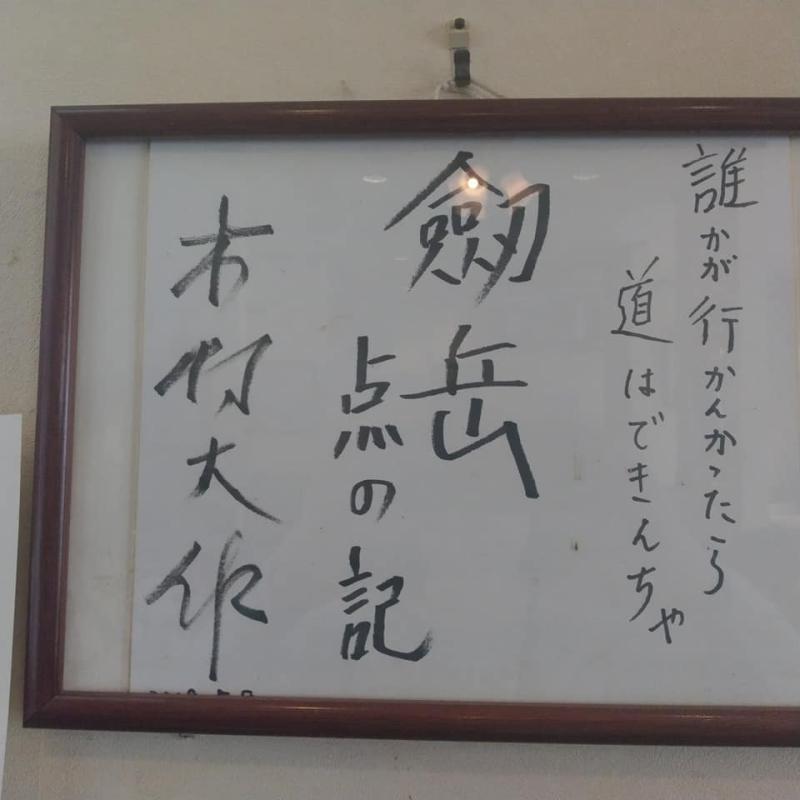 誰かが行かんかったら
道はできんちゃ
劔岳
点の記
木村大作